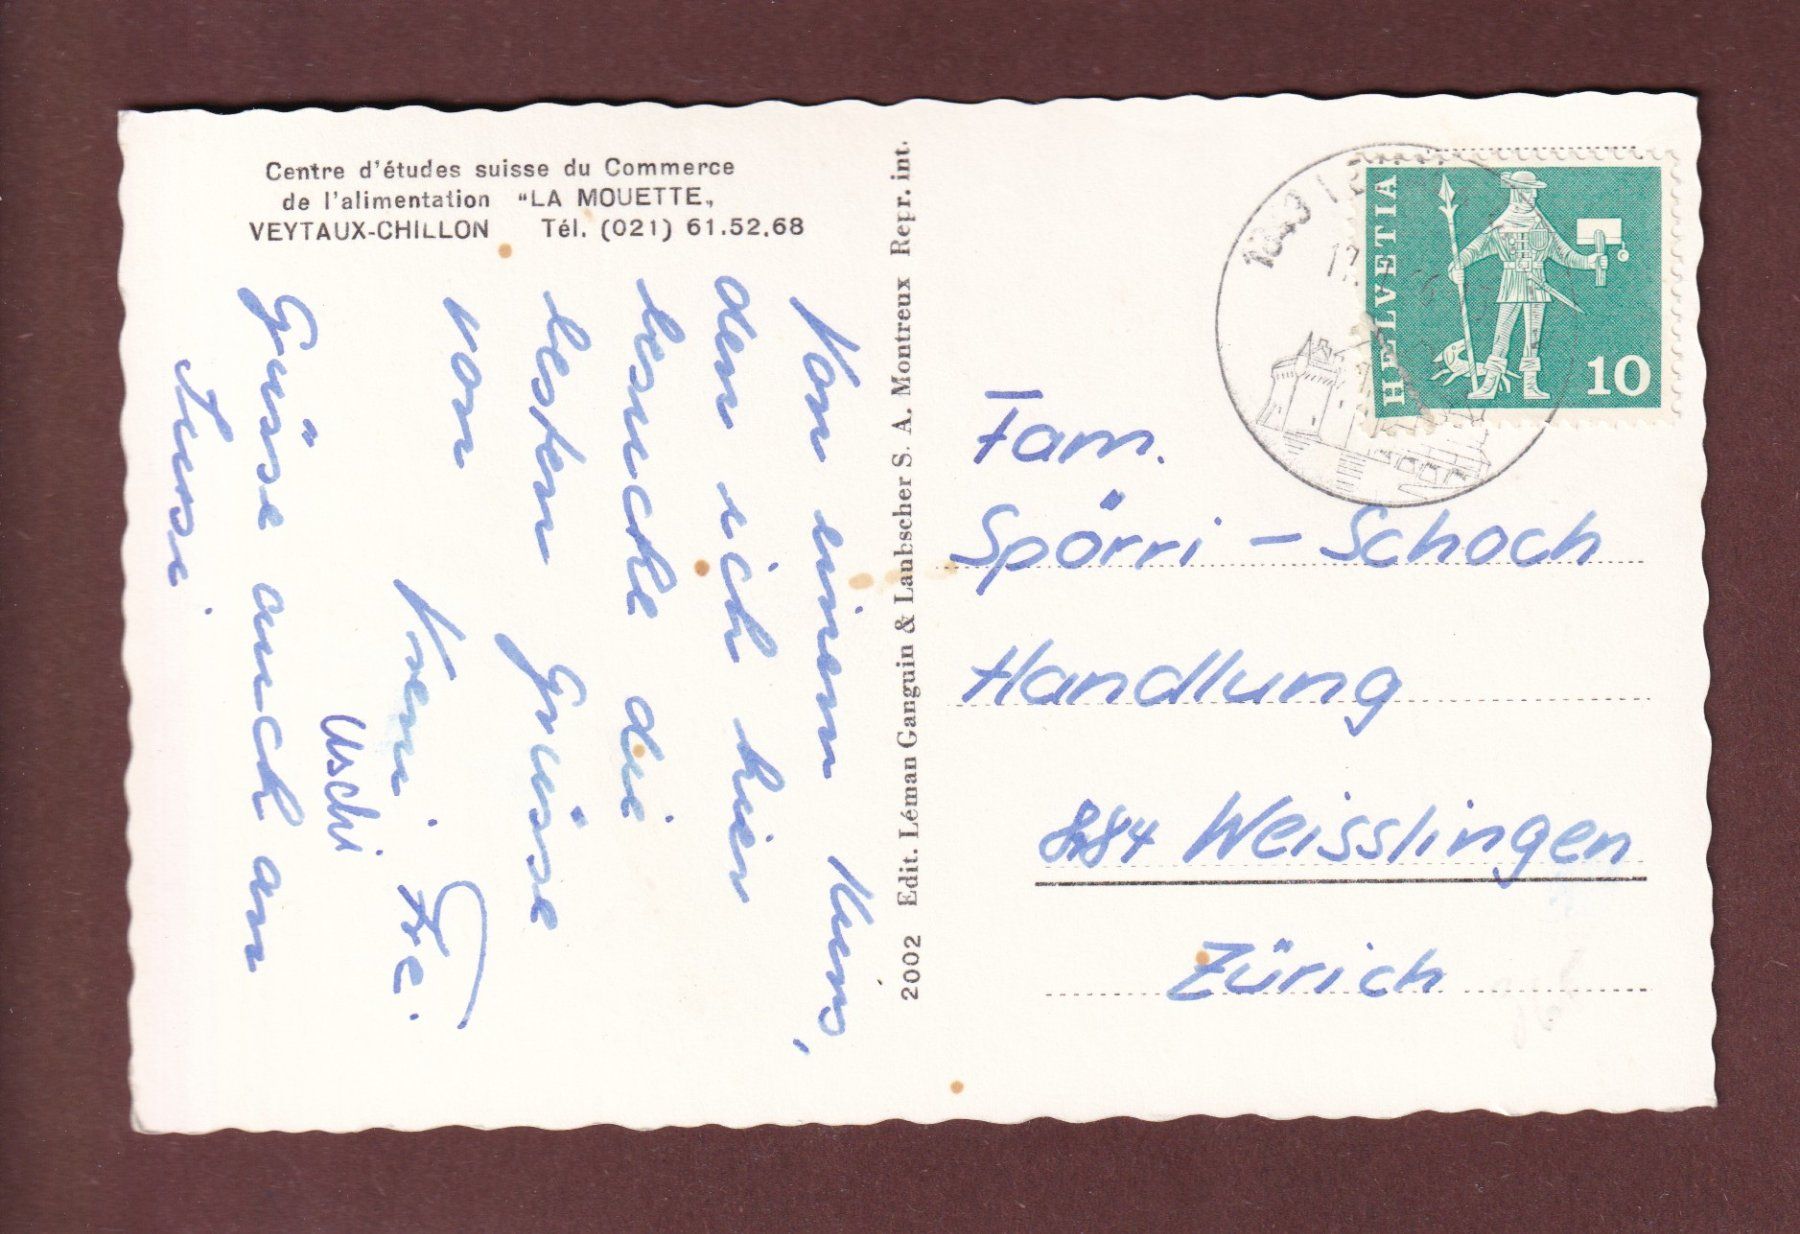 Centre d'études suisse du Commerce
de l'alimentation "LA MOUETTE,
VEYTAUX-CHILLON Tél. (021) 61.52.68
Von einem Kurs,
den ich hier
besuche die
besten Grüsse
von
Vreni Frei.
Uschi
Grüsse auch an
Susi
2002 Edit. Léman Ganguin & Laubscher S. A. Montreux Repr. int.
1843
HELVETIA
10
Fam.
Spörri - Schoch
Handlung
8484 Weisslingen
Zürich